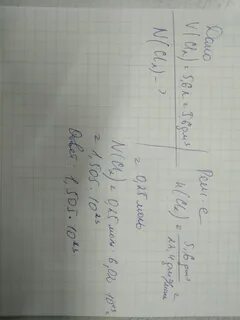 Дано
V(Cl₂) = 5,6 л = 5,6 дм³
N(Cl₂) - ?
Реш е
n(Cl₂) = 5,6 дм³ / 22,4 дм³/моль =
= 0,25 моль
N(Cl₂) = 0,25 моль · 6,02 · 10²³
= 1,505 · 10²³
Ответ: 1,505 · 10²³